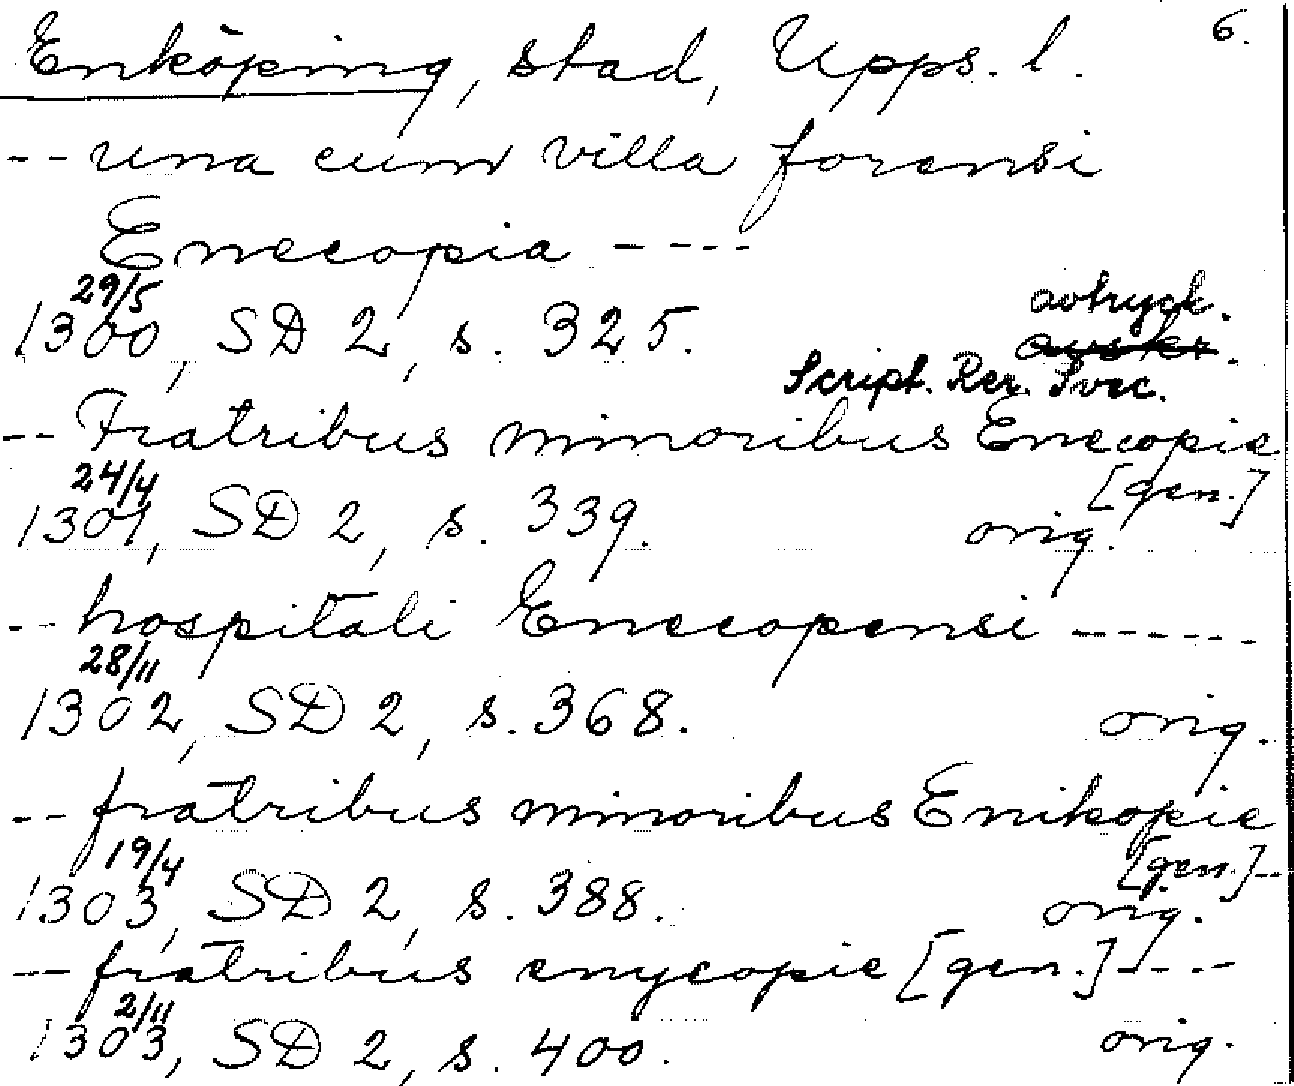 6.
Enköping, stad, Upps. l.
-- una cum villa forensi
Enecopia ----
29/5
1300, SD 2, s. 325. avtryck.
Script. Rer. Svec.
-- Fratribus minoribus Enecopie
24/4 [gen.]
1301, SD 2, s. 339. orig.
-- hospitali Enecopensi ------
28/11
1302, SD 2, s. 368. orig.
-- fratribus minoribus Enikopie
19/4 [gen.]--
1303, SD 2, s. 388. orig.
-- fratribus enycopie [gen.]----
2/11
1303, SD 2, s. 400. orig.